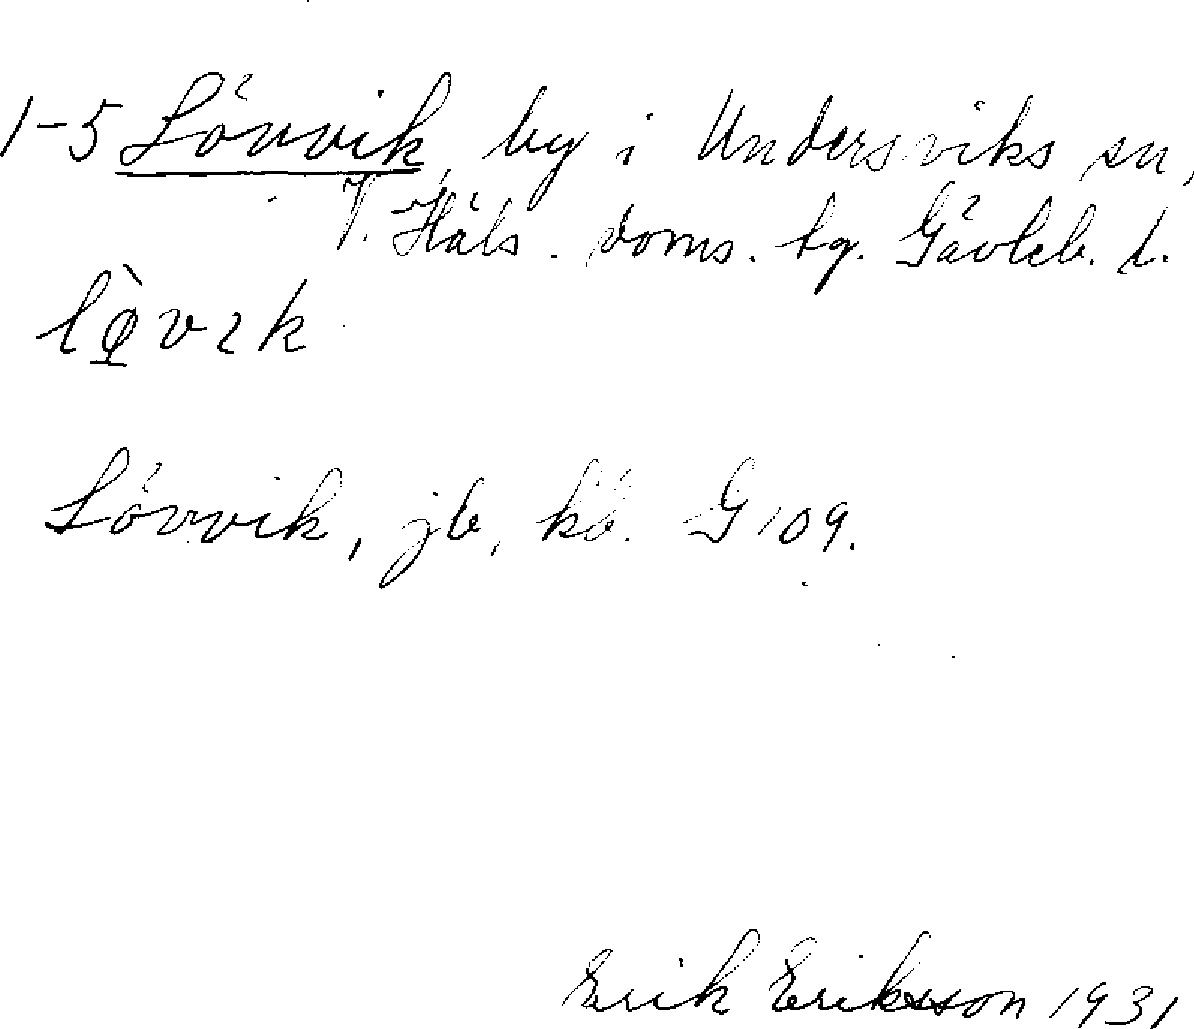 1-5 Lövvik, by i Undersviks sn,
V. Häls. doms. tg. Gävleb. l.
lø̀vɪk
Lövvik, jb, kb. G 109.
Erik Eriksson 1931